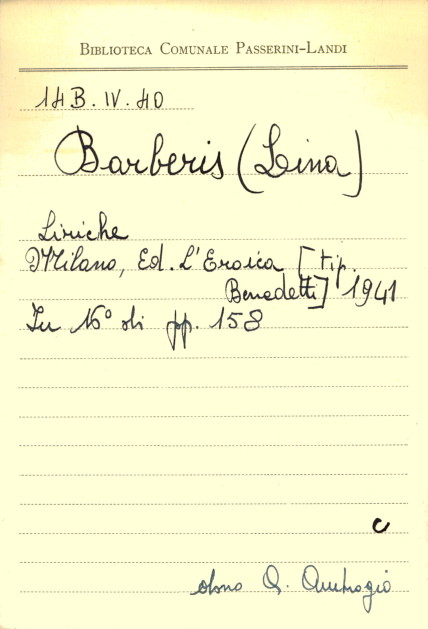 BIBLIOTECA COMUNALE PASSERINI-LANDI
14B.IV.40
Barberis (Lina)
Liriche
Milano, Ed. L'Eroica [tip.
Benedetti] 1941
In 16° di pp. 158
c
dono Ambrogio